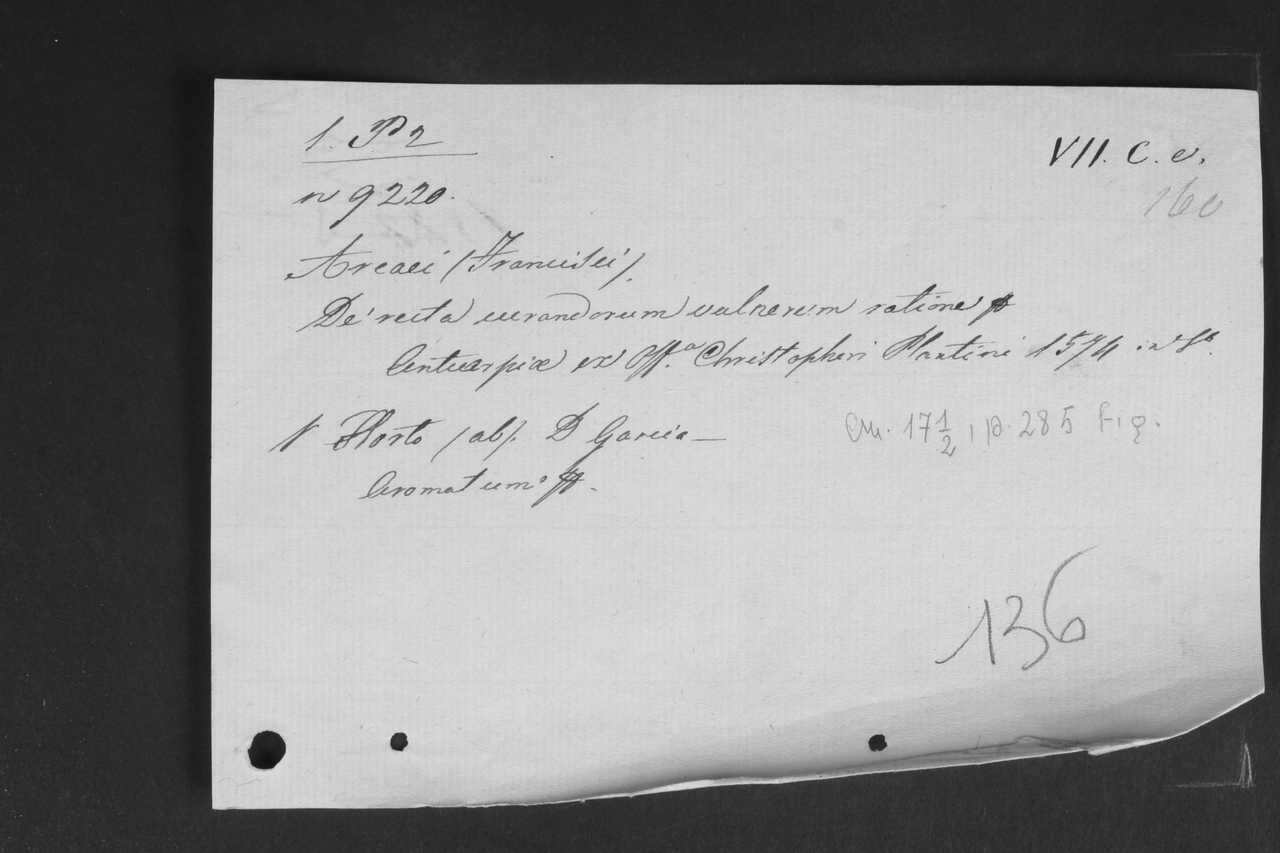 1. P2
VII. C. v.
n 9220.
160
Arcaei (Francisci).
De recta curandorum vulnerum ratione
Antuerpiæ ex Off.ª Christopheri Plantini 1574 in 8º.
V Horto (ab). D Garcia —
Aromatum
Cm. 17 1/2, p. 285 fig.
136